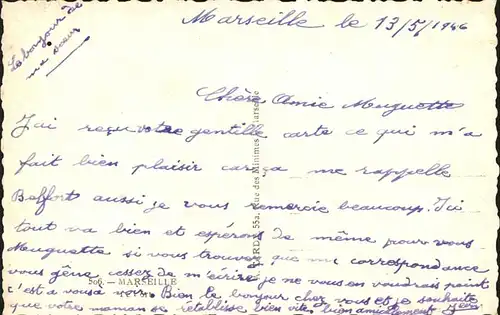 Le bonjour de
ma soeur
Marseille le 13/5/1946
Chère Amie Muguette
J'ai reçu votre gentille carte ce qui m'a
fait bien plaisir car ça me rappelle
Belfort aussi je vous remercie beaucoup. Ici
tout va bien et espérons de même pour vous
Muguette si vous trouvez que ma correspondance
vous gêne cessez de m'écrire je ne vous en voudrais point
c'est a vous Bien le bonjour chez vous et je souhaite
que votre maman se rétablisse bien vite bien amicalement
506. - MARSEILLE
55a, rue des Minimes Marseille